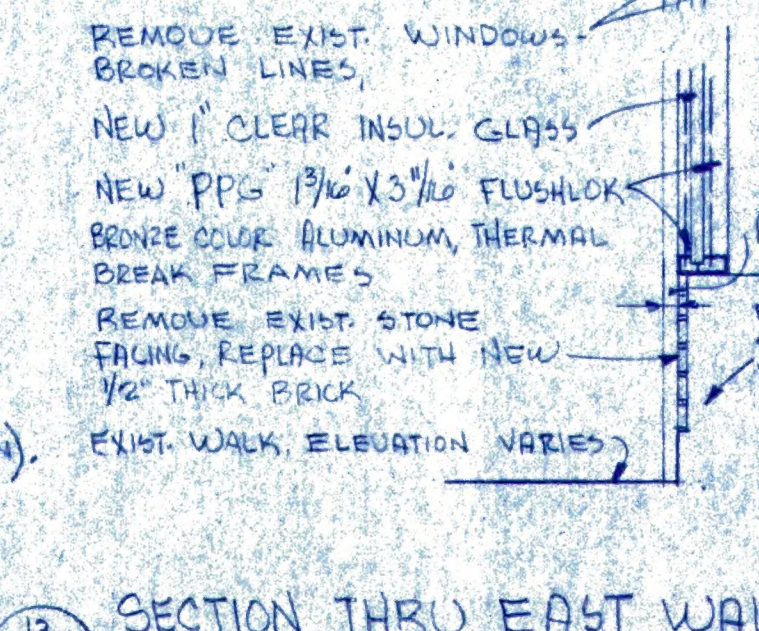 REMOVE EXIST. WINDOWS-
BROKEN LINES,
NEW 1" CLEAR INSUL. GLASS
NEW "PPG" 1 3/16" X 3 11/16" FLUSHLOK
BRONZE COLOR ALUMINUM, THERMAL
BREAK FRAMES
REMOVE EXIST. STONE
FACING, REPLACE WITH NEW
1/2" THICK BRICK
EXIST. WALK, ELEVATION VARIES
SECTION THRU EAST